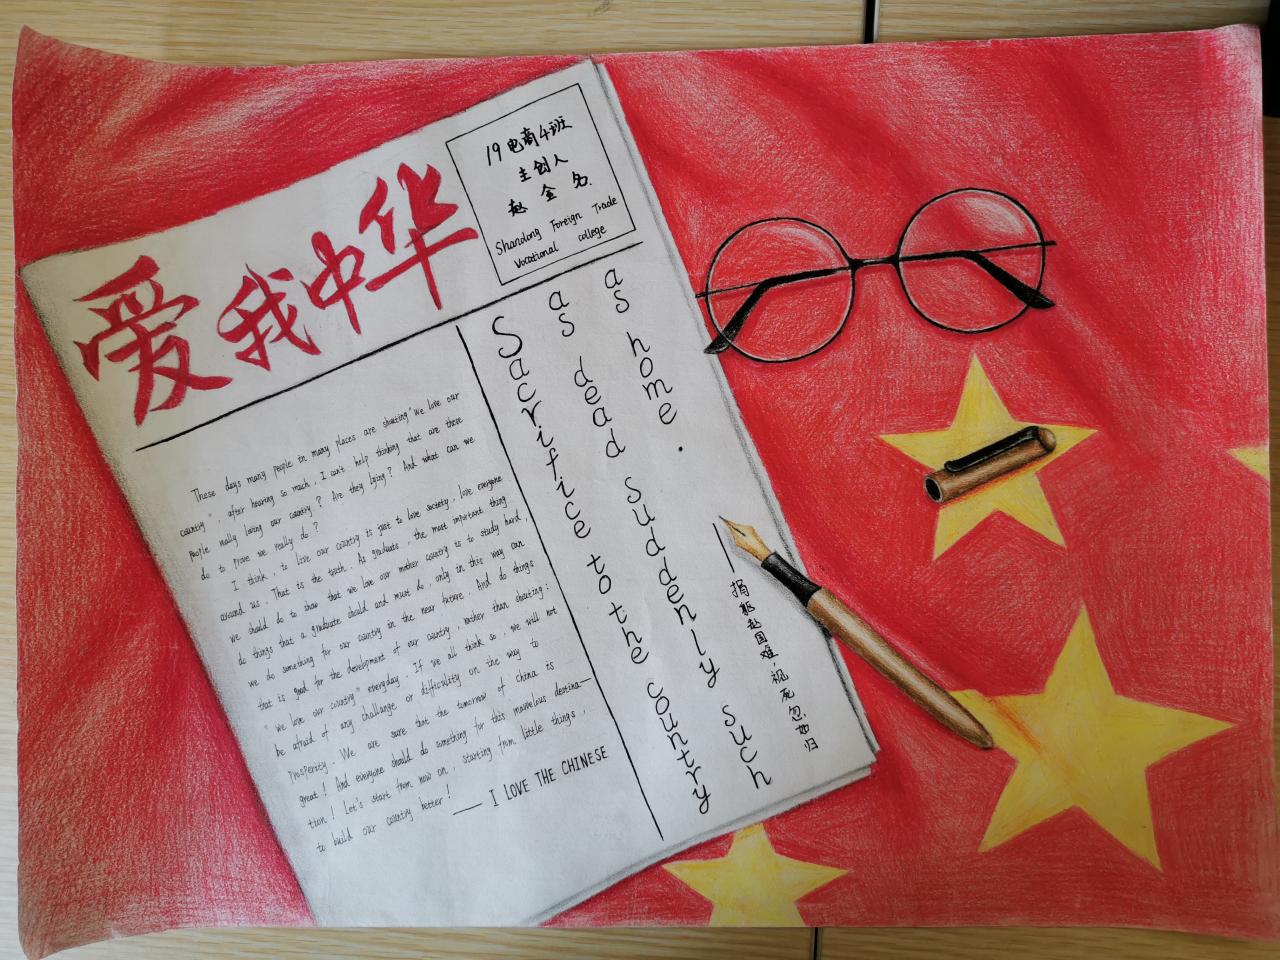 爱我中华
19电商4班
主创人
赵金名
Shandong Foreign Trade
Vocational college
These days many people in many places are shouting "We love our
country", after hearing so much, I can't help thinking that are these
people really loving our country? Are they lying? And what can we
do to prove we really do?
I think, to live our country is just to love society, love everyone
around us. That is the truth. As graduate, the most important thing
we should do to show that we love our mother country is to study hard,
do things that a graduate should and must do, only in this way can
we do something for our country in the near future. And do things
that is good for the development of our country, rather than shouting:
"we love our country" everyday. If we all think so, we will not
be afraid of any challange or difficulity on the way to
prosperity. We are sure that the tomorrow of china is
great! And everyone should do something for this marvelous destina—
tion! Let's start from now on, starting from little things,
to build our country better!
—— I LOVE THE CHINESE
Sacrifice to the country
as dead suddenly such
as home.
—捐躯赴国难,视死忽如归